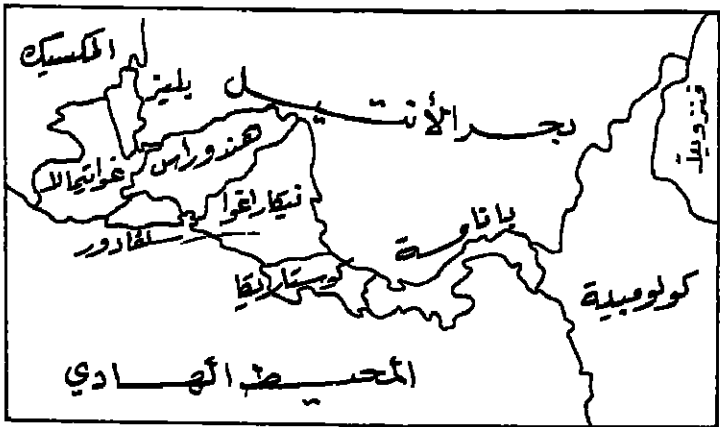 المكسيك
بليز
بحر الأنتيل
فنزويلا
هندوراس
غواتيمالا
نيكاراغوا
سلفادور
بانامة
كوستاريقا
كولومبية
المحيط الهادي